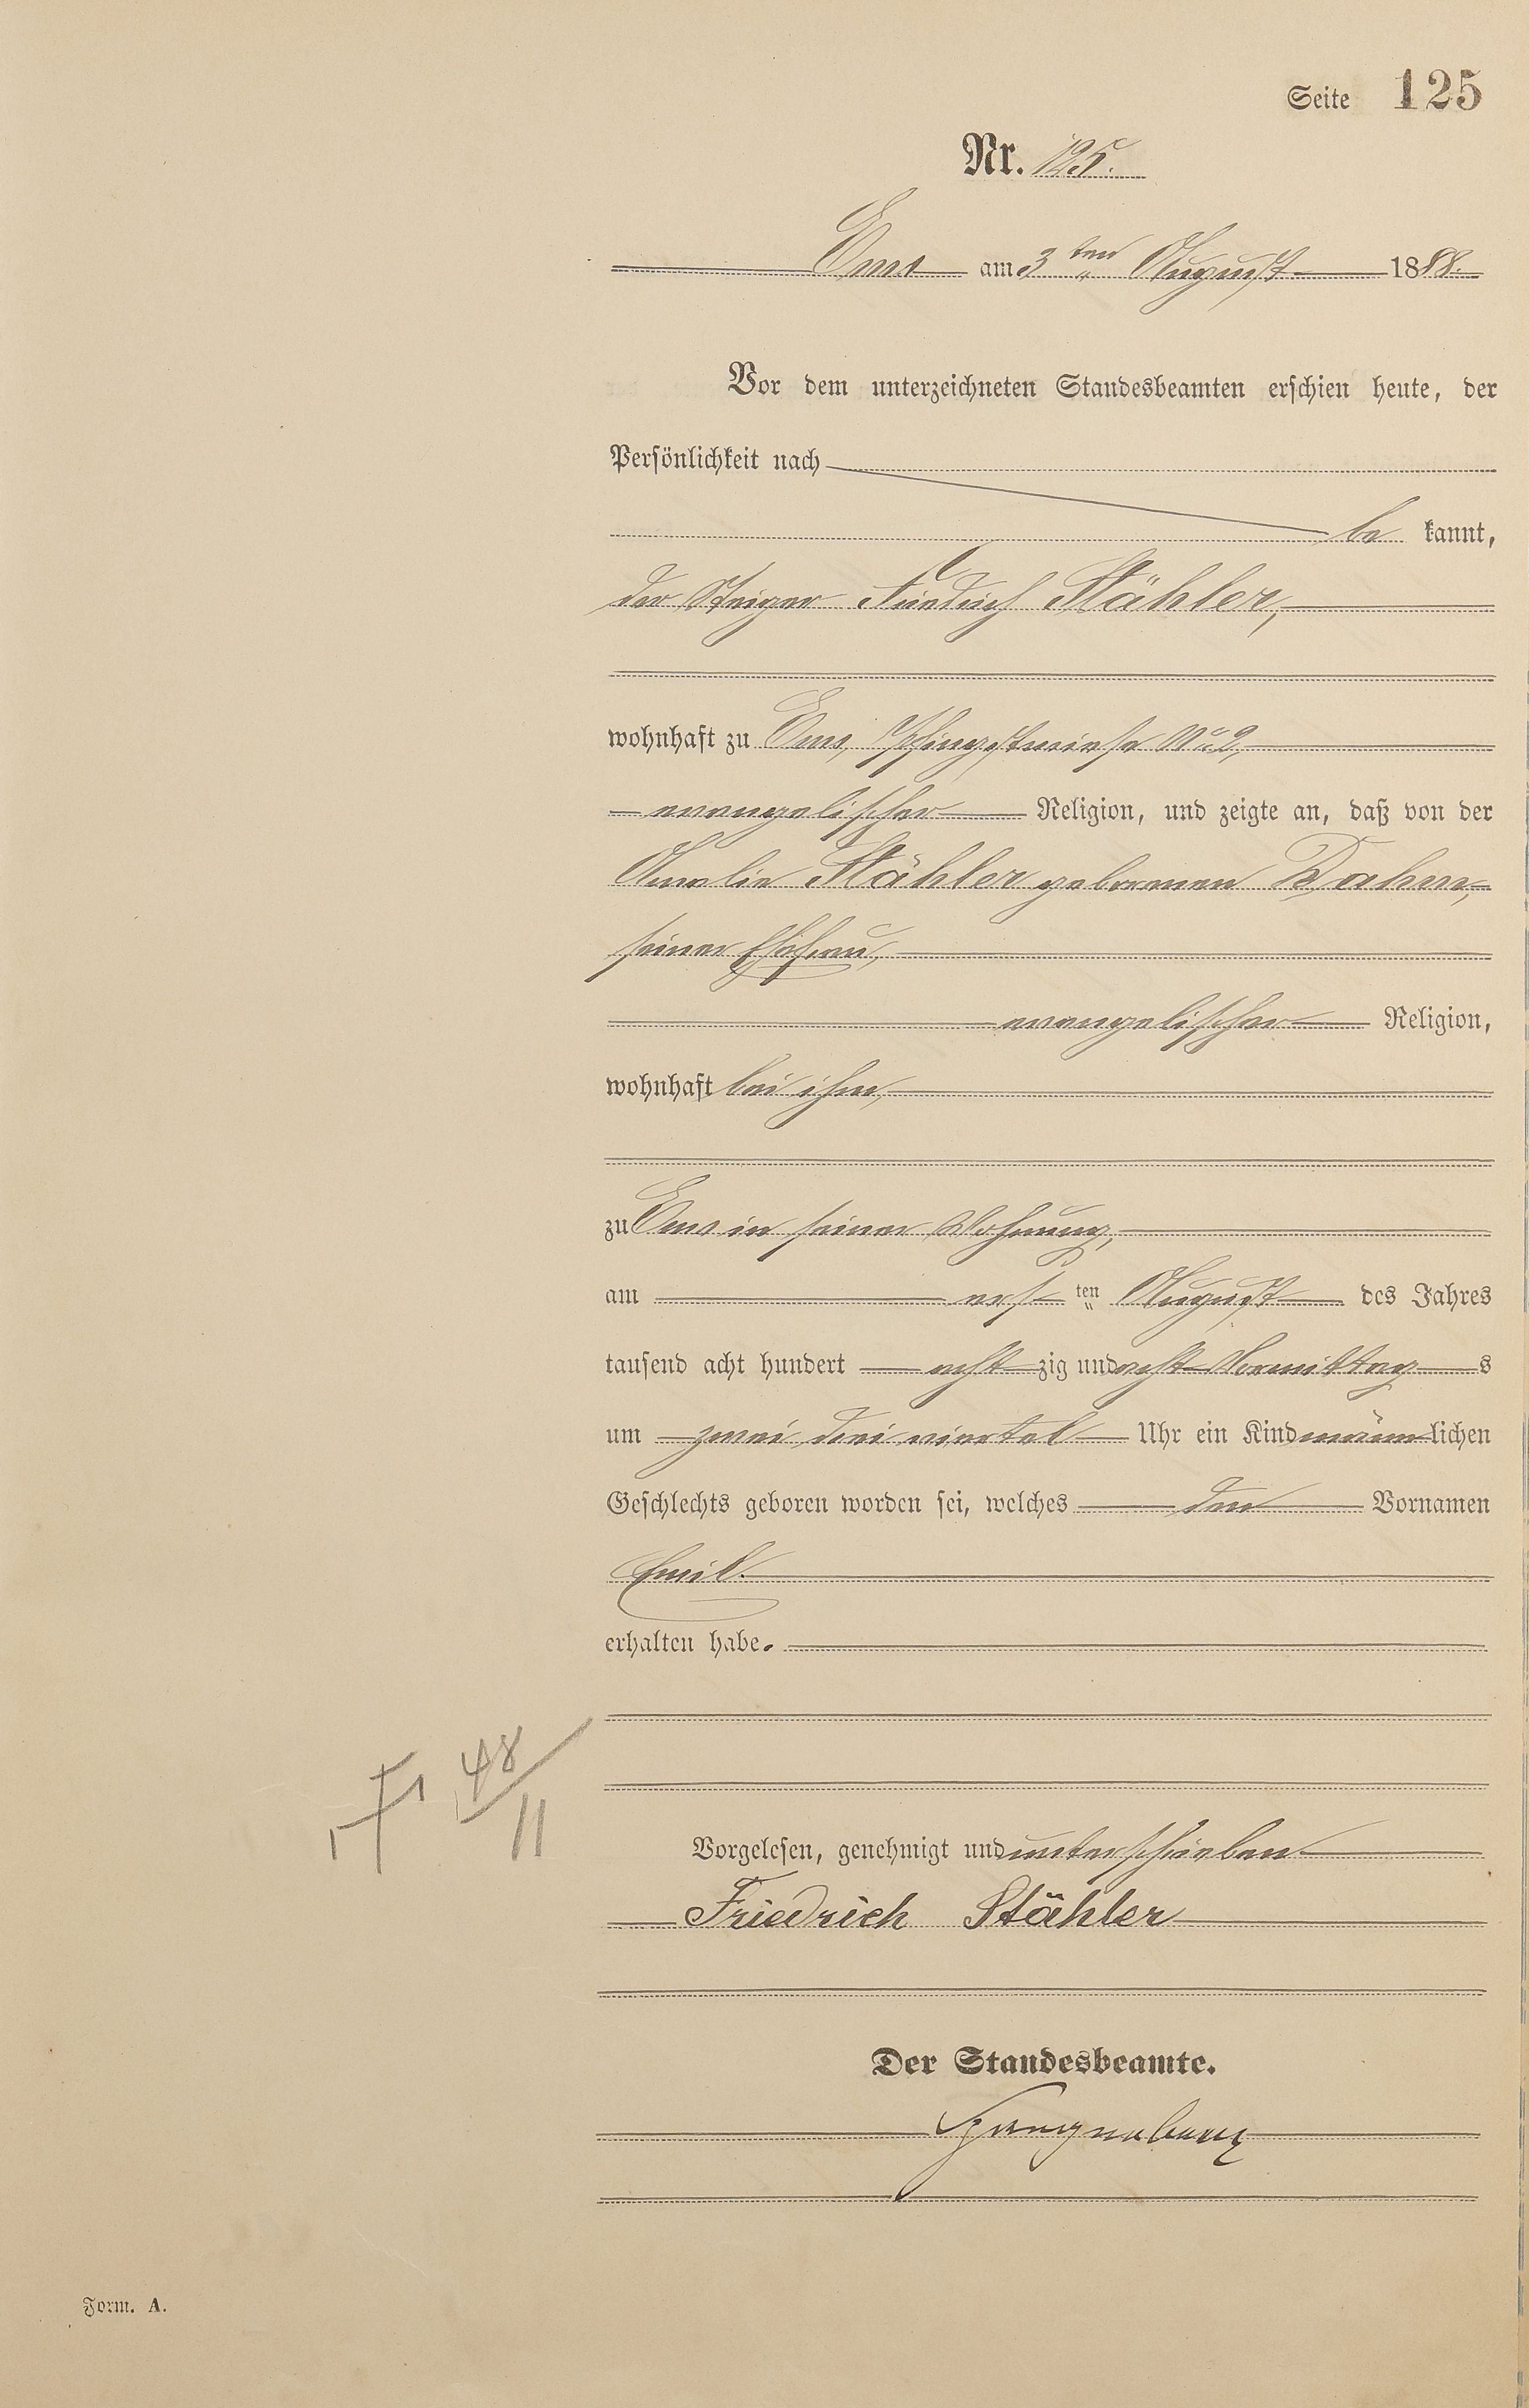 Seite 125
Nr. 125.
Ems am 3ten August 1888.
Vor dem unterzeichneten Standesbeamten erschien heute, der
Persönlichkeit nach
be kannt,
der Steiger Friedrich Stähler,
wohnhaft zu Ems, Pfingstwiese No 2,
evangelischer Religion, und zeigte an, daß von der
Amalie Stähler geborenen Dahm,
seiner Ehefrau,
evangelischer Religion,
wohnhaft bei ihm,
zu Ems in seiner Wohnung,
am ersten August des Jahres
tausend acht hundert acht zig und acht Vormittags
um zwei drei viertel Uhr ein Kind männlichen
Geschlechts geboren worden sei, welches den Vornamen
Emil.
erhalten habe.
48/11
Vorgelesen, genehmigt und unterschrieben
Friedrich Stähler
Der Standesbeamte.
Form. A.